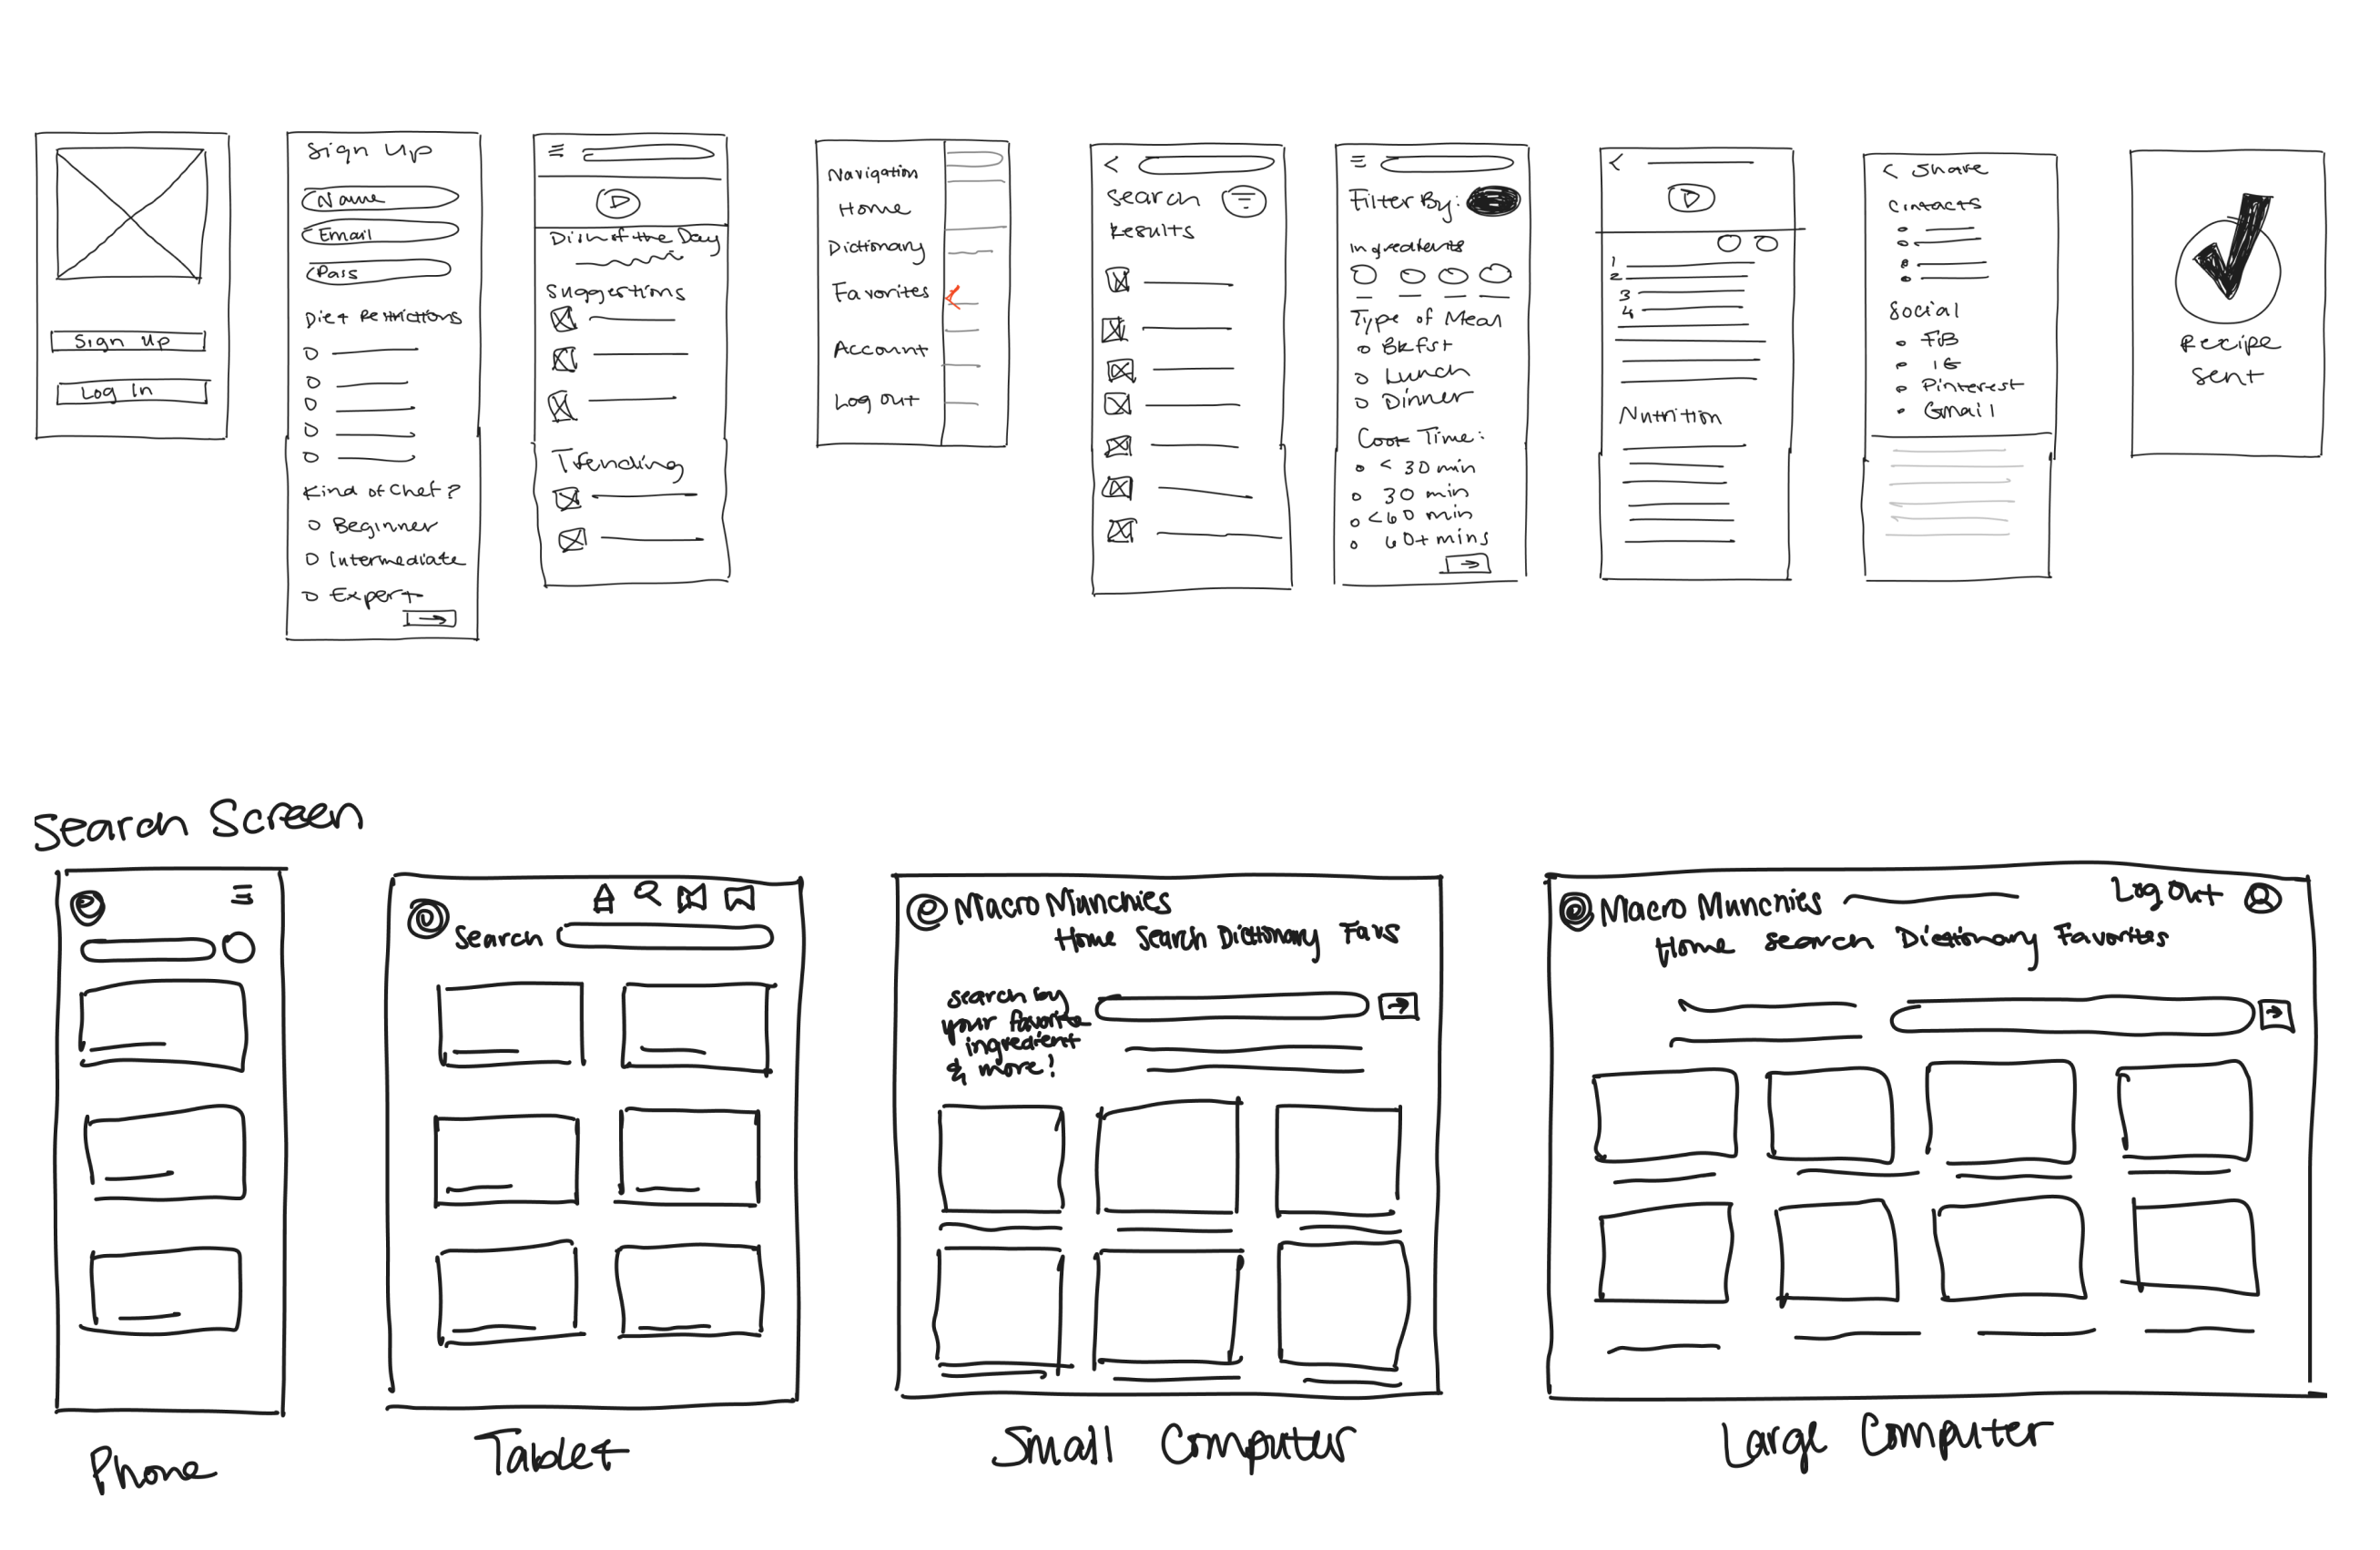 Sign Up
Log In
Sign Up
Name
Email
Pass
Diet Restrictions
Kind of Chef?
Beginner
Intermediate
Expert
Dish of the Day
Suggestions
Trending
Navigation
Home
Dictionary
Favorites
Account
Log out
Search
Results
Filter By:
Ingredients
Type of Meal
Bkfst
Lunch
Dinner
Cook Time:
< 30 min
30 min
<60 min
60+ mins
1
2
3
4
Nutrition
< Share
Contacts
Social
FB
IG
Pinterest
Gmail
Recipe
Sent
Search Screen
Search
Macro Munchies
Home Search Dictionary Favs
Search by
your favorite
ingredient
& more!
Macro Munchies
Log Out
Home Search Dictionary Favorites
Phone
Tablet
Small Computer
Large Computer